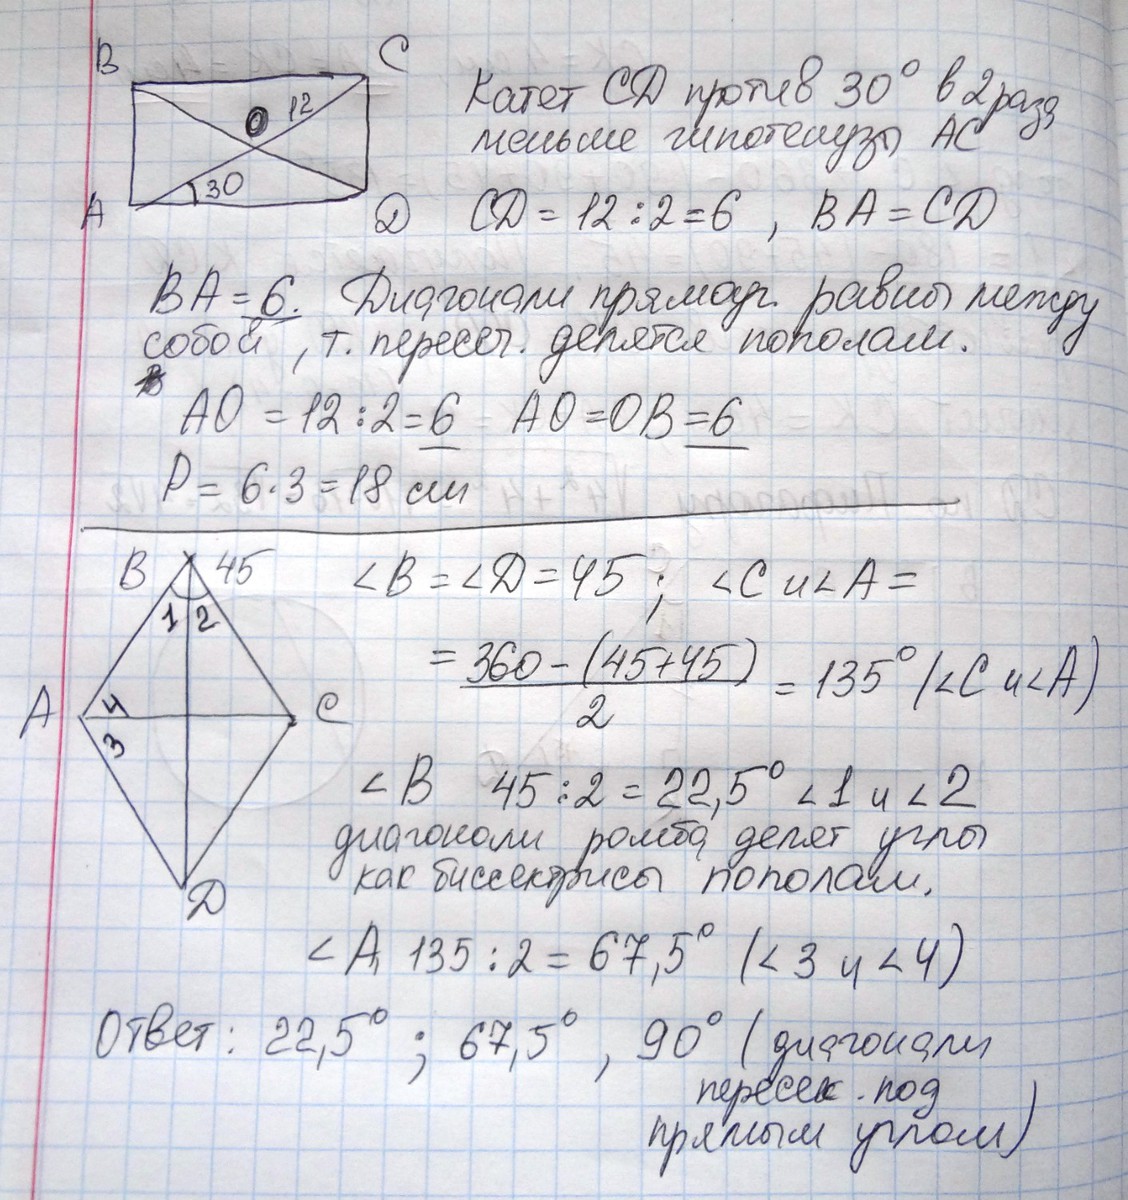 B C
12
O
30
A D
Катет CD против 30° в 2 раза
меньше гипотенузы AC
CD = 12 : 2 = 6 , BA = CD
BA = 6. Диагонали прямоуг. равны между
собой , т. пересеч. делятся пополам.
AO = 12 : 2 = 6 = AO = OB = 6
P = 6 · 3 = 18 см
B 45
1 2
A 4 C
3
D
∠B = ∠D = 45 ; ∠C и ∠A =
= 360 - (45+45) / 2 = 135° (∠C и ∠A)
∠B 45 : 2 = 22,5° ∠1 и ∠2
диагонали ромба делят углы
как биссектрисы пополам.
∠A 135 : 2 = 67,5° (∠3 и ∠4)
Ответ : 22,5° ; 67,5° , 90° (диагонали
пересек. под
прямым углом)